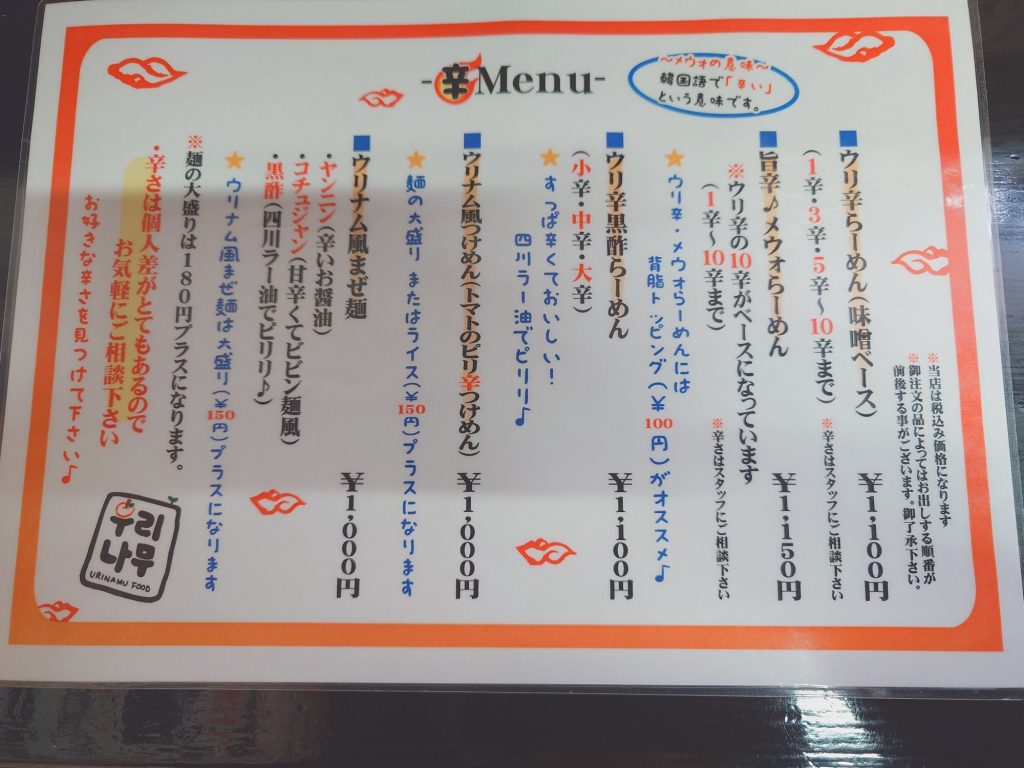 -辛Menu-
～メウォの意味～
韓国語で「辛い」
という意味です。
※当店は税込み価格になります
※御注文の品によってはお出しする順番が
前後する事がございます。御了承下さい。
■ウリ辛らーめん(味噌ベース) ¥1,100円
(1辛・3辛・5辛～10辛まで) ※辛さはスタッフにご相談下さい
■旨辛♪メウォらーめん ¥1,150円
※ウリ辛の10辛がベースになっています
(1辛～10辛まで) ※辛さはスタッフにご相談下さい
★ウリ辛・メウォらーめんには
背脂トッピング(¥100円)がオススメ♪
■ウリ辛黒酢らーめん ¥1,100円
(小辛・中辛・大辛)
★すっぱ辛くておいしい!
四川ラー油でピリリ♪
■ウリナム風つけめん(トマトのピリ辛つけめん) ¥1,000円
★麺の大盛り またはライス(¥150円)プラスになります
■ウリナム風まぜ麺 ¥1,000円
・ヤンニン(辛いお醤油)
・コチュジャン(甘辛くてビビン麺風)
・黒酢(四川ラー油でピリリ♪)
★ウリナム風まぜ麺は大盛り(¥150円)プラスになります
※麺の大盛りは180円プラスになります。
・辛さは個人差がとてもあるので
お気軽にご相談下さい
お好きな辛さを見つけて下さい♪
우리
나무
URINAMU FOOD